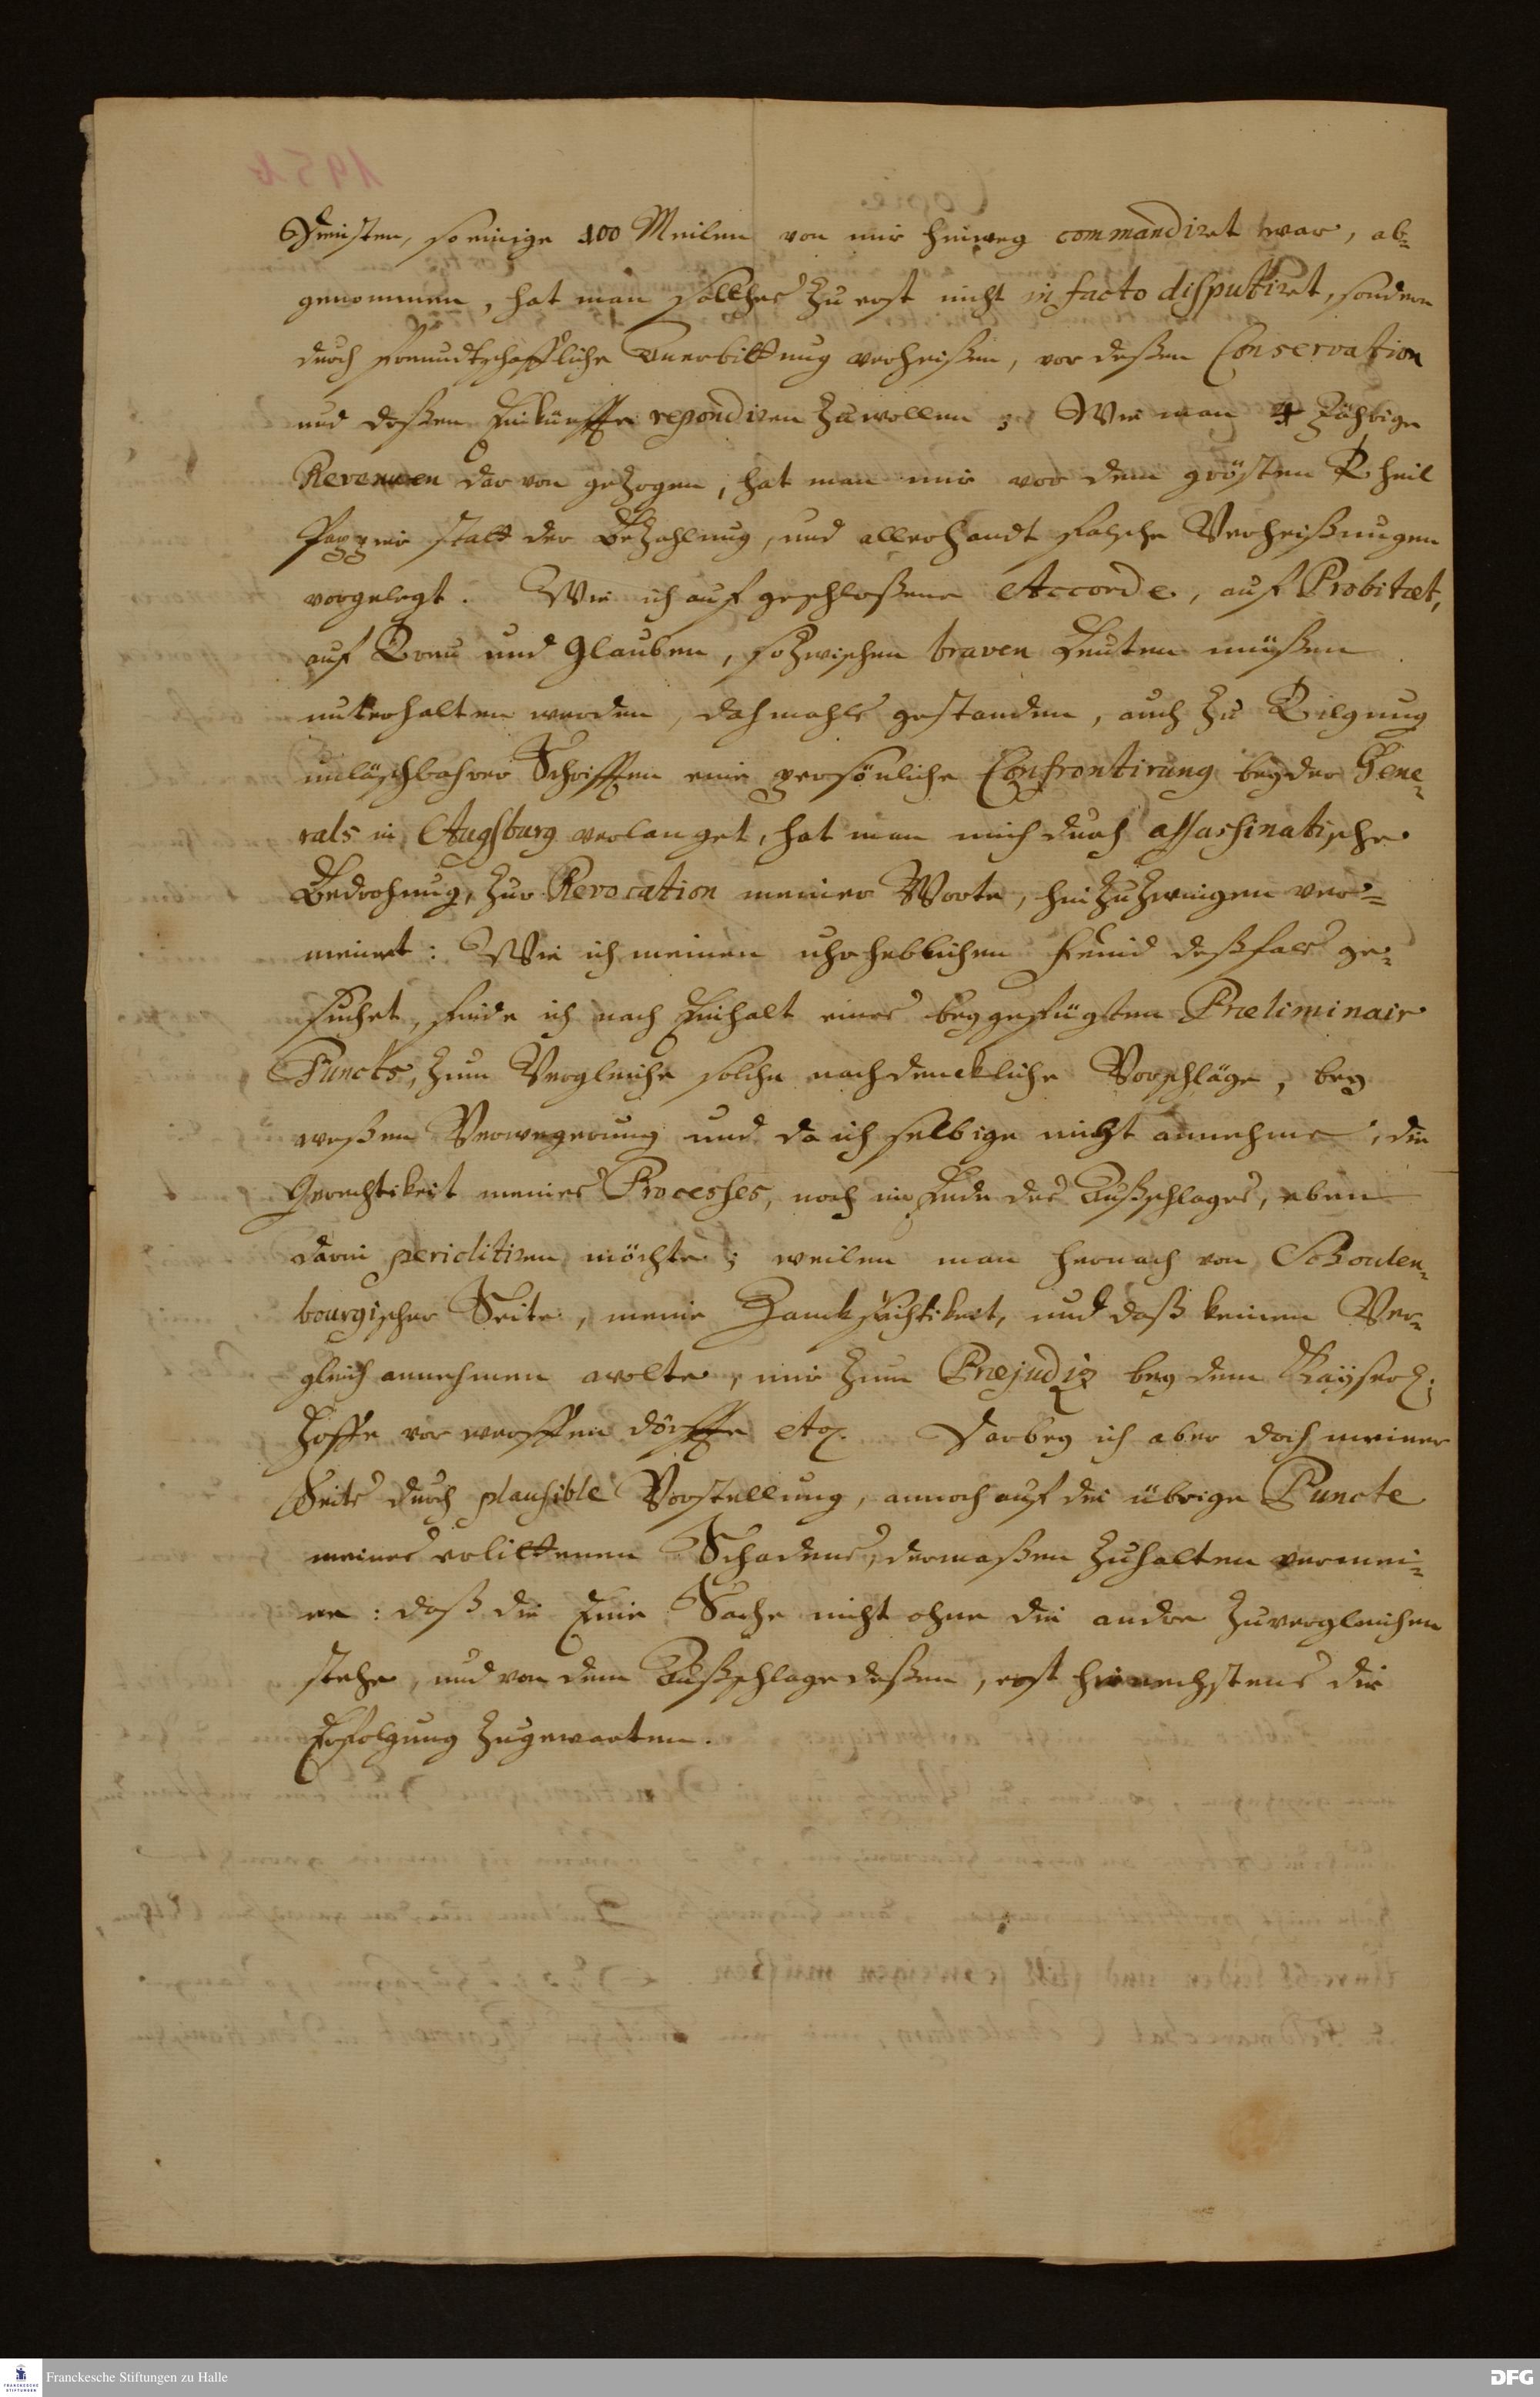 Dienſten, ſo einige 100 Meilen von mir hinweg commandiret war, ab-
genommen, hat man ſolches zu erſt nicht in facto diſputiret, ſondern
durch freundtſchafftliche Anerbittung verheißen, vor deßen Conservation
und deßen Einkünffte repondiren zu wollen; Wie man 4 Jährige
Revenuen dar von gezogen, hat man mir vor dem gröſten Theil
Pappier ſtatt der Bezahlung, und allerhandt falſche Verheißungen
vorgelegt. Wie ich auf geſchloßene Accorde, auf Probitæt,
auf Treu und Glauben, ſo zwiſchen braven Leuten müßen
unterhalten werden, dahmahls geſtanden, auch zu Tilgung
unläſchbahrer Schrifften eine perſönliche Confrontirung beyder Gene-
rals in Augſburg verlanget, hat man mich durch aſſaſſinatiſche
Bedrohung, zur Revocation meiner Worte, hin zu zwingen ver-
meinet: Wie ich meinen uhrheblichen Feind deßfals ge-
ſuchet, finde ich nach Einhalt eines beygefügten Præliminair
Puncts, zum Vergleiche ſolche nachdenckliche Vorſchläge, bey
weßen Verwegerung und da ich ſelbige nicht annehme, die
Gerechtikeit meines Proceſſes, noch im Ende des Außſchlages, eben
darin periclitiren möchte; weilen man hernach von Schoulen-
bourgiſcher Seite, meine Zanckſüchtikeit, und daß keinen Ver-
gleich annehmen wolte, mir zum Præjudiz bey dem Kayſerl:
Hoffe vor werffen dörffte etc. Darbey ich aber doch meiner
Seits durch plauſible Vorſtellung, annoch auf die übrige Puncte
meines erlittenen Schadens, dermaßen zuhalten vermei-
ne: daß die Eine Sache nicht ohne die andre zuvergleichen
ſtehe, und von dem Außſchlage deßen, erſt hienechſtens die
Erfolgung zugewarten.
Franckesche Stiftungen zu Halle
DFG